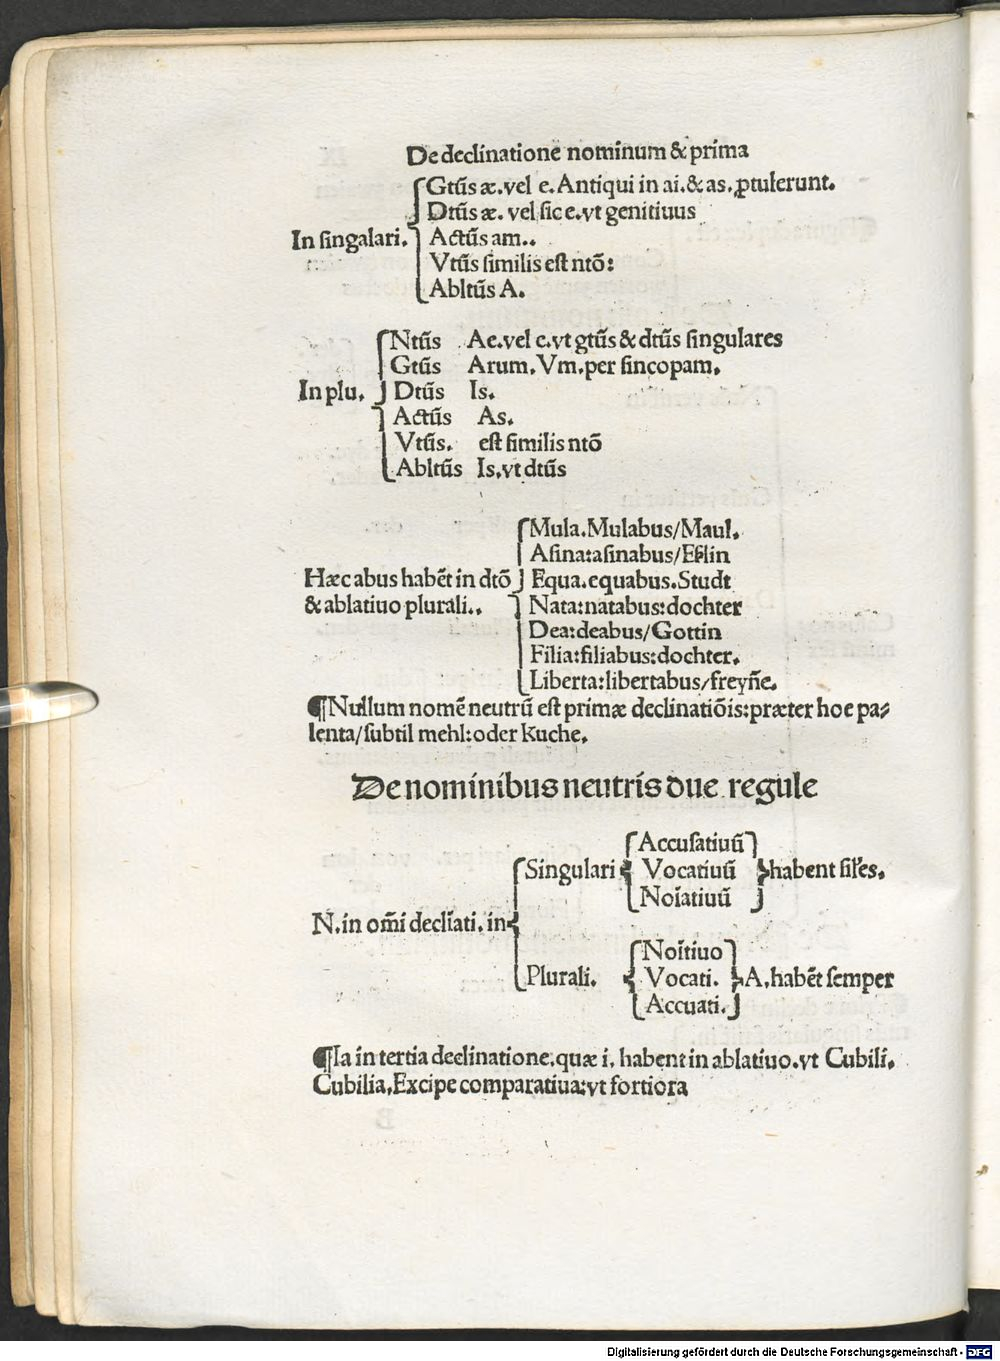 De declinatione nominum & prima
Gtũs æ. vel e. Antiqui in ai. & as. ꝓtulerunt.
Dtũs æ. vel sic e. vt genitiuus
In singalari. Actũs am..
Vtũs similis est ntõ:
Abltũs A.
Ntũs Ae. vel e. vt gtũs & dtũs singulares
Gtũs Arum. Vm. per sincopam.
In plu. Dtũs Is.
Actũs As.
Vtũs. est similis ntõ
Abltũs Is. vt dtũs
Mula. Mulabus/Maul.
Asina:asinabus/Eslin
Hæc abus habẽt in dtõ Equa. equabus. Studt
& ablatiuo plurali.. Nata:natabus:dochter
Dea:deabus/Gottin
Filia:filiabus:dochter.
Liberta:libertabus/freyñe.
¶Nullum nomẽ neutrũ est primæ declinatiõis:præter hoc pa⸗
lenta/subtil mehl:oder kuche.
De nominibus neutris due regule
Accusatiuũ
Singulari Vocatiuũ habent sił'es.
Noĩatiuũ
N. in om̃i declĩati. in
Noĩtiuo
Plurali. Vocati. A. habẽt semper
Accuati.
¶Ia in tertia declinatione. quæ i. habent in ablatiuo. vt Cubili.
Cubilia. Excipe comparatiua: vt fortiora
Digitalisierung gefördert durch die Deutsche Forschungsgemeinschaft - DFG